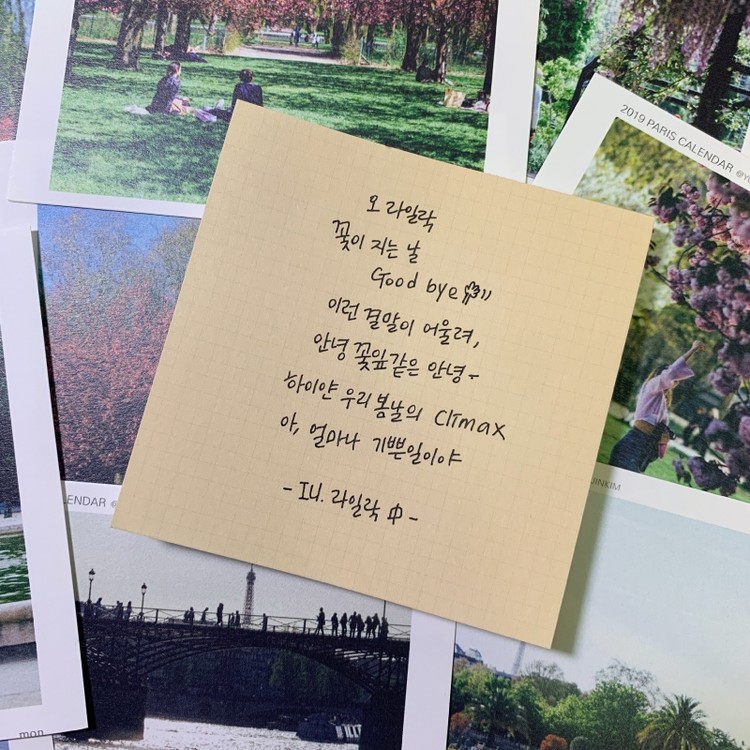 오 라일락
꽃이 지는 날
Good bye
이런 결말이 어울려,
안녕 꽃잎같은 안녕~
하이얀 우리 봄날의 Climax
아, 얼마나 기쁜일이야
- IU. 라일락 中 -
2019 PARIS CALENDAR @YU
JINKIM
ENDAR @
mon